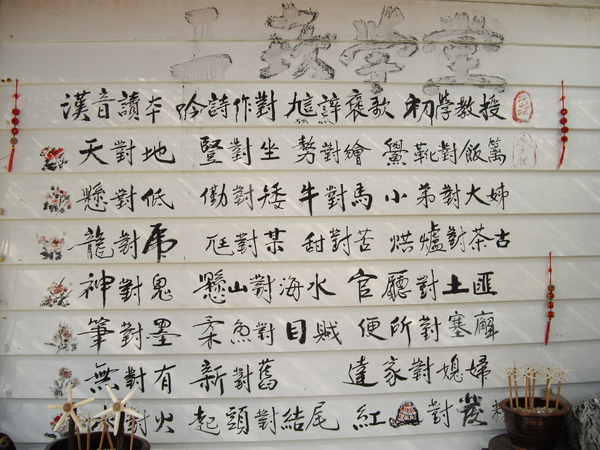 學堂
漢音讀本 吟詩作對 褒歌 初學教授
天對地 豎對坐 對繪 鱟 對飯
懸對低 對矮 牛對馬 小弟對大姊
龍對虎 尪對某 甜對苦 烘爐對茶古
神對鬼 懸山對海水 官廳對土匪
筆對墨 柔魚對目賊 便所對塞
無對有 新對舊 達家對媳婦
對火 起頭對結尾 紅 對發